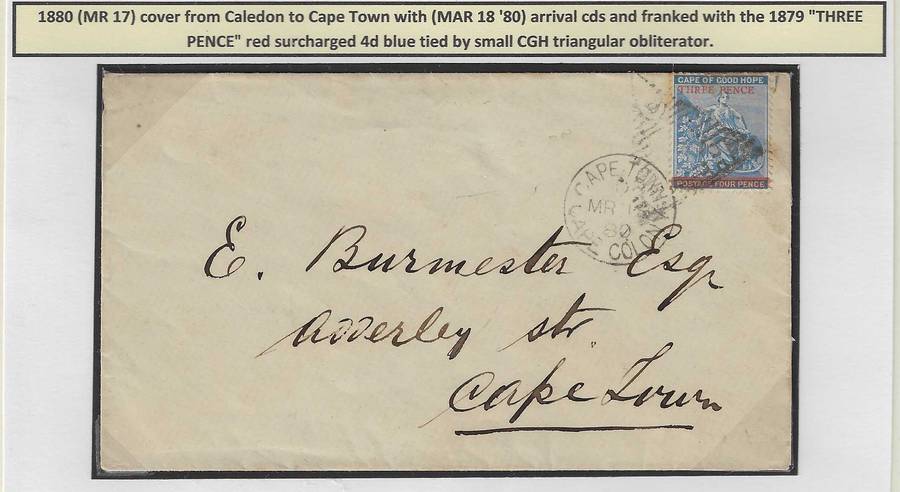 1880 (MR 17) cover from Caledon to Cape Town with (MAR 18 '80) arrival cds and franked with the 1879 "THREE
PENCE" red surcharged 4d blue tied by small CGH triangular obliterator.
CAPE OF GOOD HOPE
THREE PENCE
POSTAGE FOUR PENCE
CAPE TOWN
MR
80
CAPE COLONY
E. Burmester Esqr
Adderley str.
Cape Town